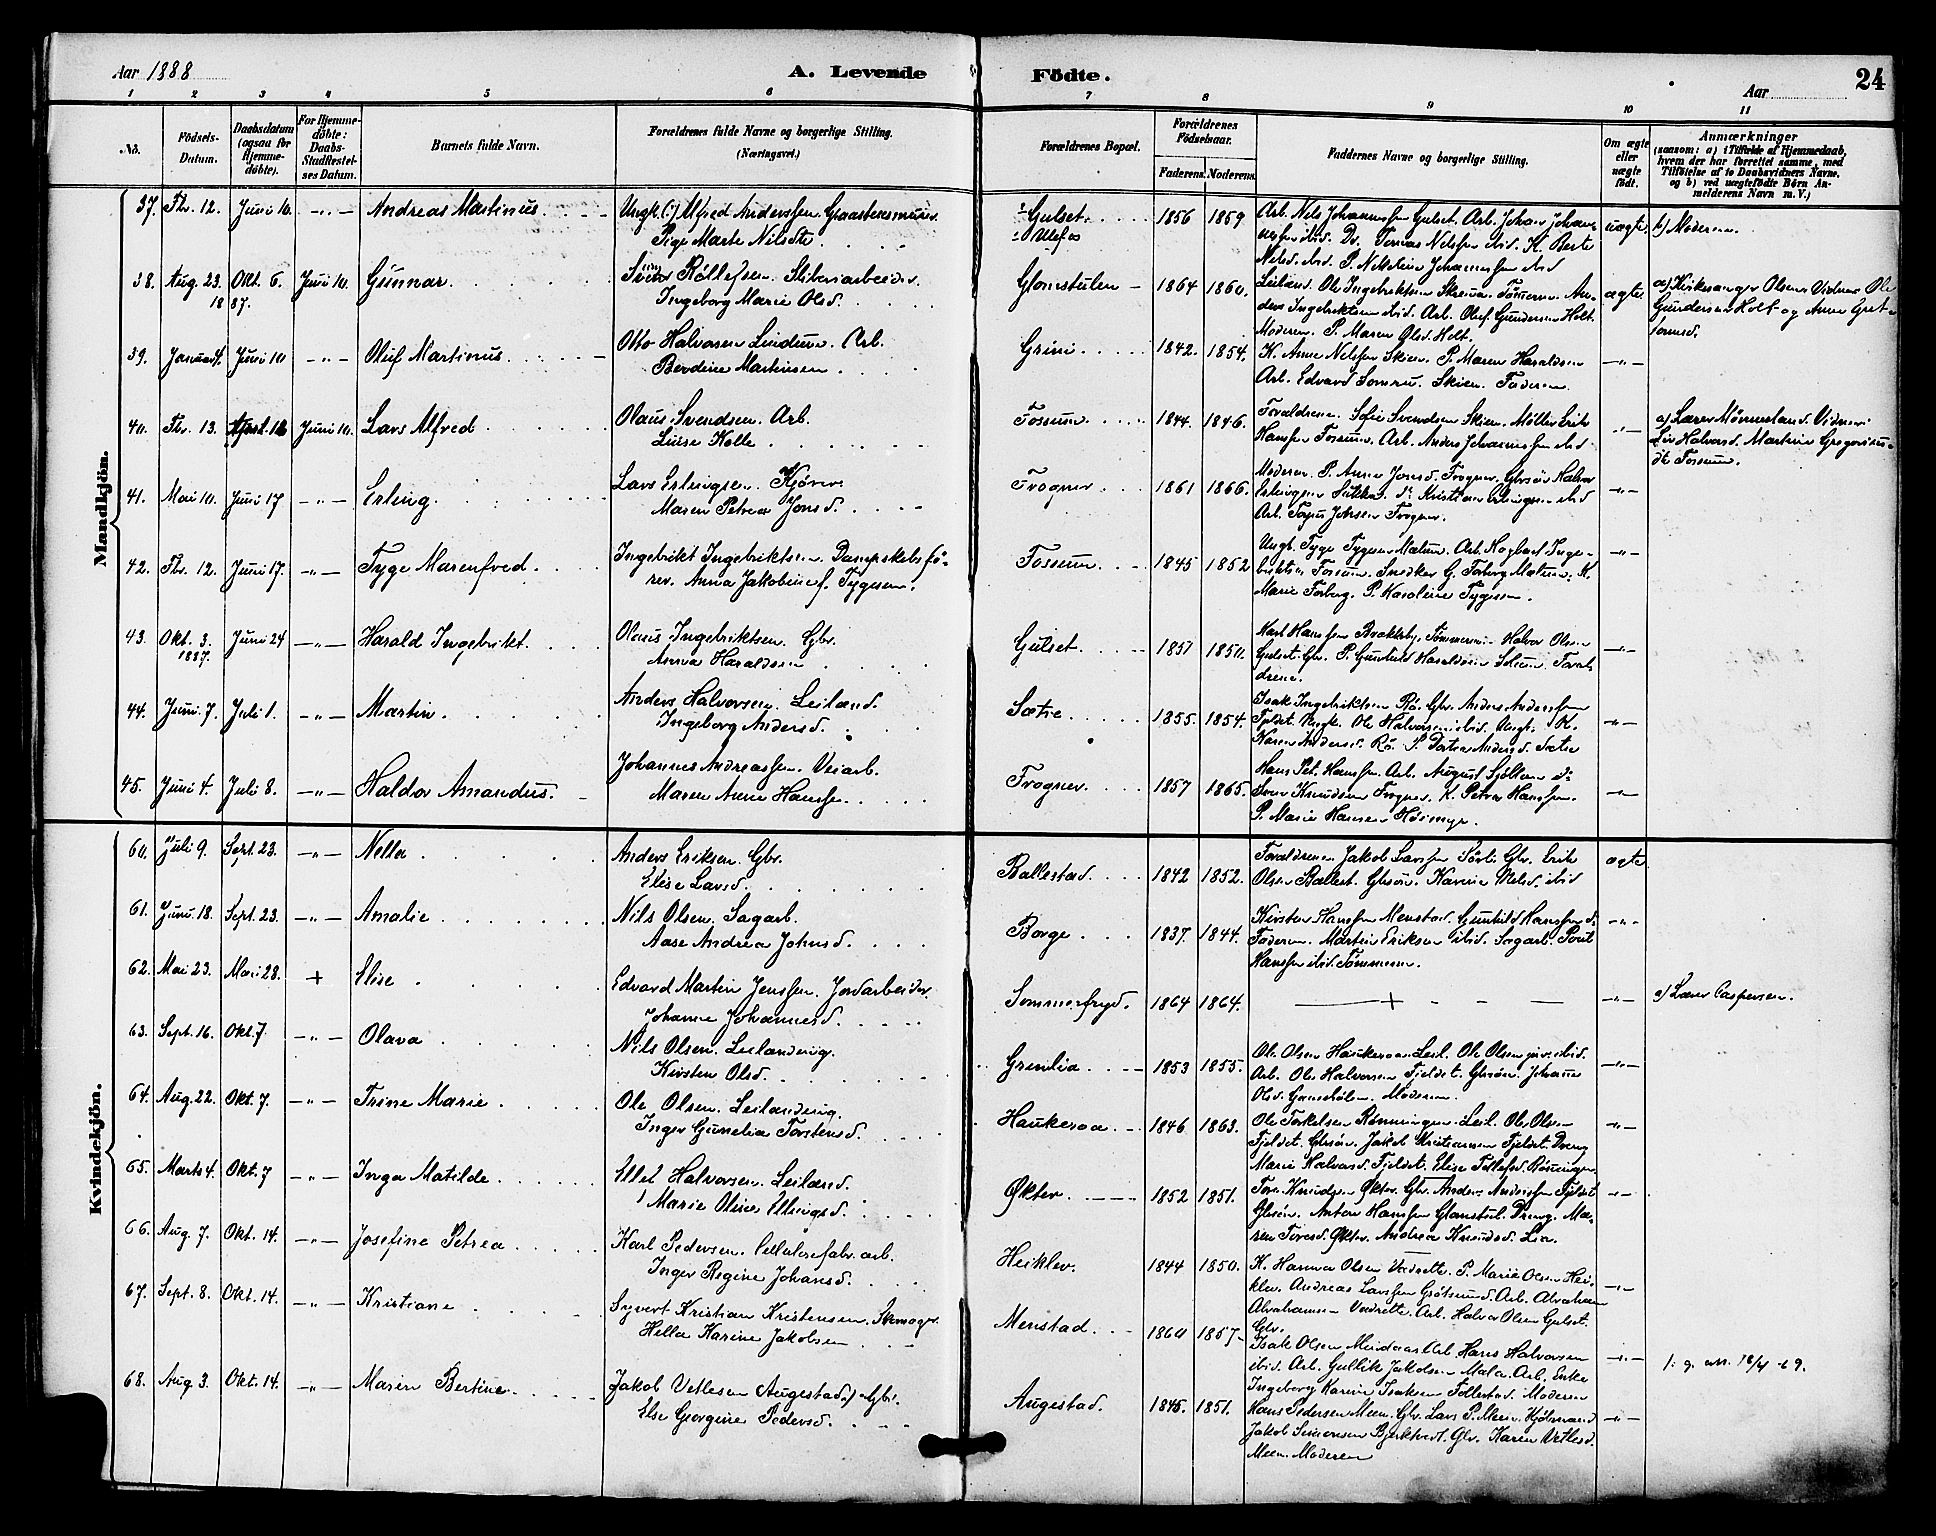 Aar 1888
A. Levende Födte.
Aar
24
1 2 3 4 5 6 7 8 9 10 11
No.
Födsels-Datum.
Daabsdatum (ogsaa for Hjemmedöbte).
For Hjemmedöbte: Daabs-Stadfæstelses Datum.
Barnets fulde Navn.
Forældrenes fulde Navne og borgerlige Stilling. (Næringsvei.)
Forældrenes Bopæl.
Forældrenes Födselsaar.
Faderens. Moderens.
Faddernes Navne og borgerlige Stilling.
Om ægte eller uægte födt.
Anmærkninger
(saasom: a) i Tilfælde af Hjemmedaab, hvem der har forrettet samme, med Tilföielse af to Daabsvidners Navne, og b) ved uægtefödte Börn Anmelderens Navn m. V.)
Mandkjön.
37. Fbr. 12. Juni 10. -"- Andreas Martinus. Ungk. (:) Alfred Anderssen Graastensmurer
Pige Marte Nilsdtr.
Gulset. Ulefos 1856 1859
Arb. Nils Johannessen Gulset. Arb. Johan Johannessen ibid. Dr. Tomas Nilssen ibid. K. Berte
Nilsd. ibid. P. Nikoline Johannessen ibid
uægte. b) Moderen.
38. Aug. 23. 1887. Okt. 6. Juni 10. Gunnar. Rollefsen. Sliberiarbeider.
Ingeborg Marie Olsd.
Glomstulen 1864 1860.
Leiland. Ole Ingebriktsen Tømmerm. Anders Ingebriktsen ibid. Arb. Oluf Gundersen Holt.
Moderen. P. Maren Olsd. Holt.
ægte a) Kirkesanger Olsen. Vidner Ole
Gundersen Holt og Anne Gret
39. Januar 4. Juni 10 -"- Oluf Martinus. Otto Halvorsen Lindum. Arb.
Berdine Martinsen.
Grini 1842. 1854.
K. Anne Nilssen Skien. P. Maren Haraldsen
Arb. Edvard Skien. Faderen.
-"-
40. Fbr. 13. Juni 10. Lars Alfred Olaus Svendsen. Arb.
Luise Kolle
Fossum 1844. 1846.
Forældrene. Sofie Svendsen Skien. Møller Erik
Hanssen Fossum. Arb. Anders Johannessen ibid
-"- a) Lærer Mønnesland. Vidner:
Liv Halvorsd. Martine Gregoriusdtr Fossum.
41. Mai 10. Juni 17 -"- Erling. Lars Erlingsen. Kjører.
Maren Petrea Jonsd.
Frogner 1861 1866.
Moderen. P. Anne Jonsd. Frogner. Gbrsøn Halvor
Erlingsen Kristian Erlingsen ibid
Arb. Johsen Frogner.
-"-
42. Fbr. 12. Juni 17. -"- Tyge Marenfred. Ingebrikt Ingebriktsen. Dampskibsfører. Anna Jakobine f. Tygesen.
Fossum 1845 1852
Ungk. Tyge Tygesen Mælum. Arb. Hagbart Ingebriktsen Fossum. Snedker G. Forberg Mælum. K.
Marie Forberg. P. Karoline Tygesen.
-"-
43. Okt. 3. 1887. Juni 24 -"- Harald Ingebrikt. Olaus Ingebriktsen. Gbr.
Anna Haraldsen
Gulset 1857 1850.
Karl Hanssen Tømmerm. Halvor Olsen
Gulset. Gbr. P. Gunhild Haraldsen Forældrene.
-"-
44. Juni 7. Juli 1. -"- Martin. Anders Halvorsen. Leiland.
Ingeborg Andersd.
Sætre 1855. 1854.
Isak Ingebriktsen Rø. Gbr. Anders Anderssen
Fjeldet. Ungk. Ole Halvorsen ibid. Ungk. K.
Karen Andersd. Rø. P. Dorthea Andersd. Sætre
-"-
45. Juni 4. Juli 8. -"- Haldor Amandus. Johannes Andreassen. Veiarb.
Maren Anne Hanssen.
Frogner 1857 1865.
Hans Pet. Hanssen. Arb. August
Knudsen Frogner. K. Petra Hanssen.
P. Marie Hansen Høimyr.
-"-
Kvindekjön.
60. Juli 9. Sept. 23. -"- Nella Anders Eriksen. Gbr.
Elise Larsd.
Ballestad. 1842 1852.
Forældrene. Jakob Larssen Sørli. Gbr. Erik
Olsen Ballest. Gbrsøn. Karine Nilsd. ibid
ægte
61. Juni 18. Sept. 23. -"- Amalie Nils Olsen. Sagarb.
Aase Andrea Johnsd.
Borge 1837. 1844.
Kirsten Hanssen Menstad. Gunhild Hanssen d.
Faderen. Martin Eriksen ibid. Sagarb. Poul
Hanssen ibid. Tømmerm.
-"-
62. Mai 23. Mai 28. + Elise Edvard Martin Jenssen. Jordarbeider.
Johanne Johannesd.
Sommerfryd. 1864 1864. — + — -"- a) Lærer Caspersen.
63. Sept. 16. Okt. 7. -"- Olava Nils Olsen. Leilænding.
Kirsten Olsd.
Grinilia 1853 1855.
Ole Olsen Haukeraa. Leil. Ole Olsen jun. ibid.
Arb. Ole Halvorsen Fjeldet. Gbrsøn. Johanne
Olsd. Moderen.
-"-
64. Aug. 22. Okt. 7. -"- Trine Marie Ole Olsen. Leilænding.
Inger Gunelia Torstensd.
Haukeraa 1846 1863.
Ole Torkelsen Rønningen. Leil. Ole Olsen
Fjeldet. Gbrsøn. Jakob Kristiansen Fjeldet. Dreng
Marie Halvorsd. Fjeldet. Elise Tollefsd. Rønningen.
-"-
65. Marts 4. Okt. 7 -"- Inga Matilde Ellef Halvorsen. Leiland.
Marie Oline Ellingsd.
Økter. 1852 1851.
Tore Knudsen Økter. Gbr. Anders Anderssen Fjeldet
Gbrsøn. Anton Hanssen Glamstul. Dreng. Maren Toresd. Økter. Andrea Knudsd. Lia.
-"-
66. Aug. 7. Okt. 14. -"- Josefine Petrea Karl Pedersen. Cellulosefabr. arb.
Inger Regine Johansd.
Heikler. 1844 1850.
K. Hanna Olsen Vadrette. P. Marie Olsen Heikler. Andreas Larssen Grøtsund. Arb. Abraham
Abrahamsen Vadrette. Arb. Halvor Olsen Gulset.
Gbr.
-"-
67. Sept. 8. Okt. 14. -"- Kristiane Syvert Kristian Kristensen. Skomager.
Hella Karine Jakobsen
Menstad. 1864 1857
Isak Olsen Arb. Hans Halvorsen
ibid. Arb. Gullik Jakobsen Mæla. Arb. Enke
Ingeborg Karine Isaksen Follestad. Moderen
-"- 1. g. att. 18/4 -69.
68. Aug. 3. Okt. 14. -"- Maren Bertine Jakob Vetlesen Augestad. Gbr.
Else Georgine Pedersd.
Augestad. 1845. 1851.
Hans Pedersen Meen. Gbr. Lars P. Meen. Hjølmand
Jakob Simonsen Bjerkholt. Gbr. Karen Vetlesd.
Meen. Moderen
-"-